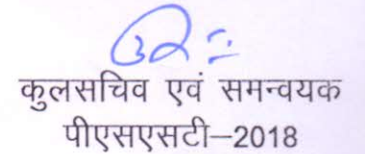 कुलसचिव एवं समन्वयक
पीएसएसटी–2018